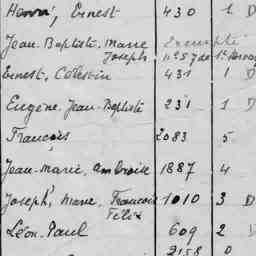 Henri, Ernest 430 1 D
Jean-Baptiste-Marie Exempté
Joseph n°57 de
Ernest, Célestin 431 1 D
Eugène, Jean-Baptiste 231 1 D
François 2083 5
Jean-Marie, Ambroise 1887 4
Joseph, Marie, François 1010 3 D
Félix
Léon-Paul 609 2 D
2158 0